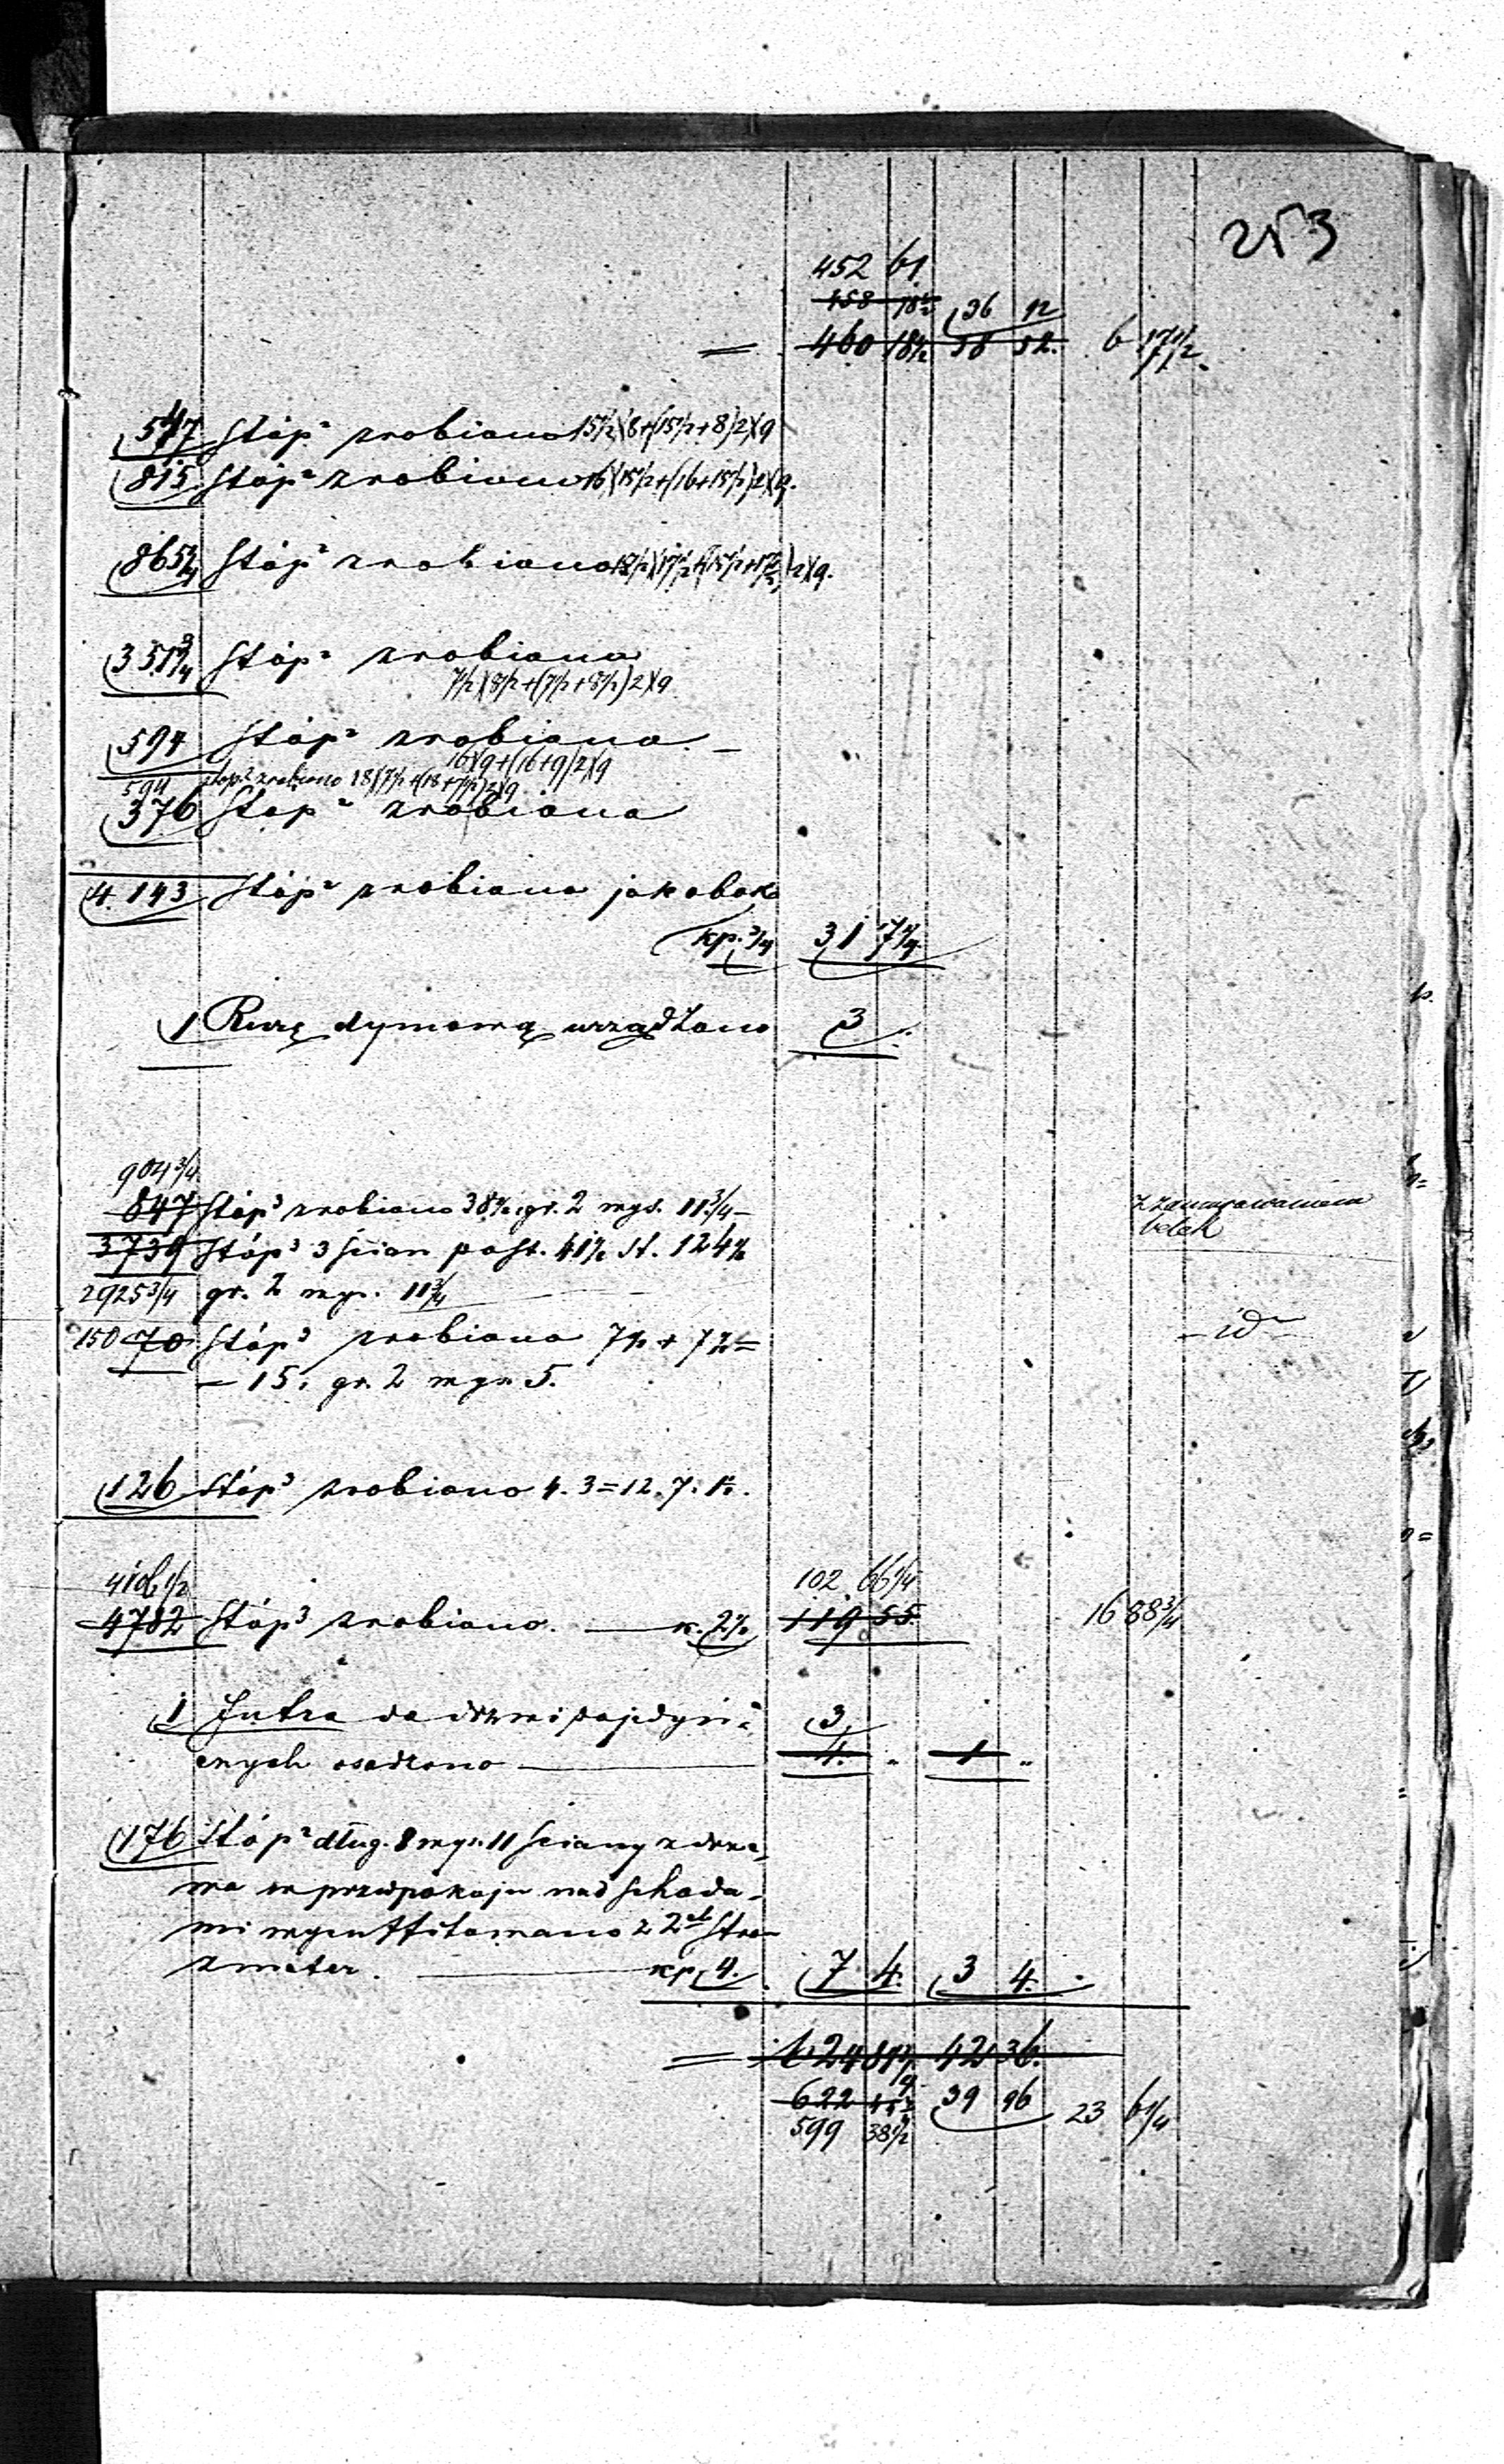 253
452 61
158 18½ 36 92
= 460 18½ 38 52. 6 17½
547 Stóp² zrobiono 15½)(8+(15½+8)2)(9
815 Stóp² zrobiono 16)(15½+(16+15½)2)(9.
865¾ Stóp² zrobiono
351¾ Stóp² zrobiono
7½)(8½+(7½+8½)2)(9
594 Stóp² zrobiono —
16)(9+(16+9)2)(9
594 stóp² zrobiono 18)(7½+(18+7½)2)(9
376 Stóp² zrobiono
4.143 Stóp² zrobiono
kp. ¾ 31 7¼
1 Rurę dymową urządzono 3 "
904¾
847 Stóp³ zrobiono 38½ gr. 2 wys. 11¾ z zamurowaniem
3739 Stóp³ 3 ścian 41½ st. 124½ belek
2925¾ gr. 2 wys. 11¾
150 70 Stóp³ zrobiono 7½ + 7½ = — id —
— 15, gr. 2 wys. 5.
126 Stóp³ zrobiono 4. 3 = 12. 7. 1½.
4106½ 102 66¼
4782 Stóp³ zrobiono. — k. 2½ 119 55. 16 88¾
1 Futra do drzwi pojedyń- 3
czych osadzono — 4. " 1 "
176 Stóp² dług. 8 wys. 11 ściany z drze-
wa w przedpokoju nad schoda-
mi 2 stron
kp. 4. 7 4. 3 4.
= 624 81¼ 42 36.
622 39 96 23 6¼
599 38½